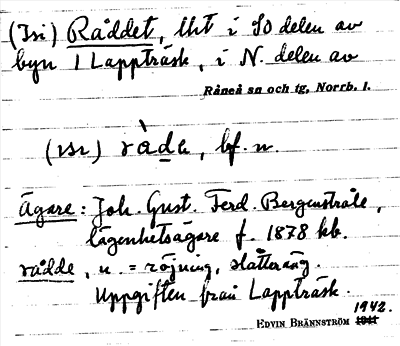 (Isi) Råddet, lht i SO delen av
byn 1 Lappträsk, i N. delen av
Råneå sn och tg, Norrb. l.
(ısı) ràde, bf. n.
Ägare: Joh. Gust. Ferd. Bergenstråle,
lägenhetsägare f. 1878 kb.
rådde, n. = röjning, slåtteräng.
Uppgiften från Lappträsk.
1942.
EDVIN BRÄNNSTRÖM 1941